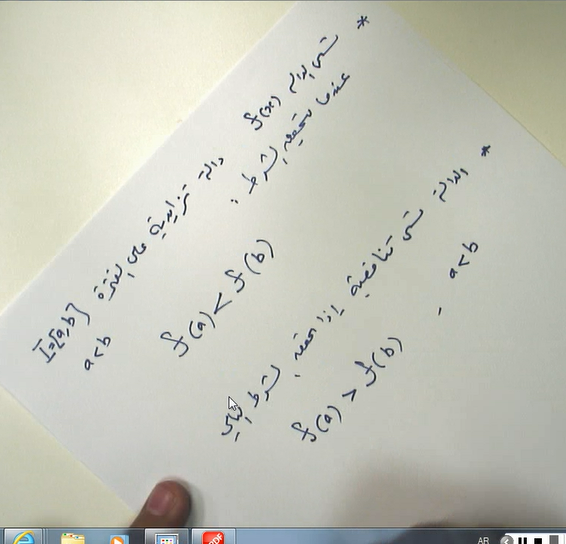 * تسمى الدالة f(x) دالة تزايدية على الفترة I=[a,b]
عندما يتحقق الشرط :
a<b
f(a) < f(b)
* الدالة تسمى تناقصية إذا تحقق الشرط التالي
f(a) > f(b) , a<b
AR